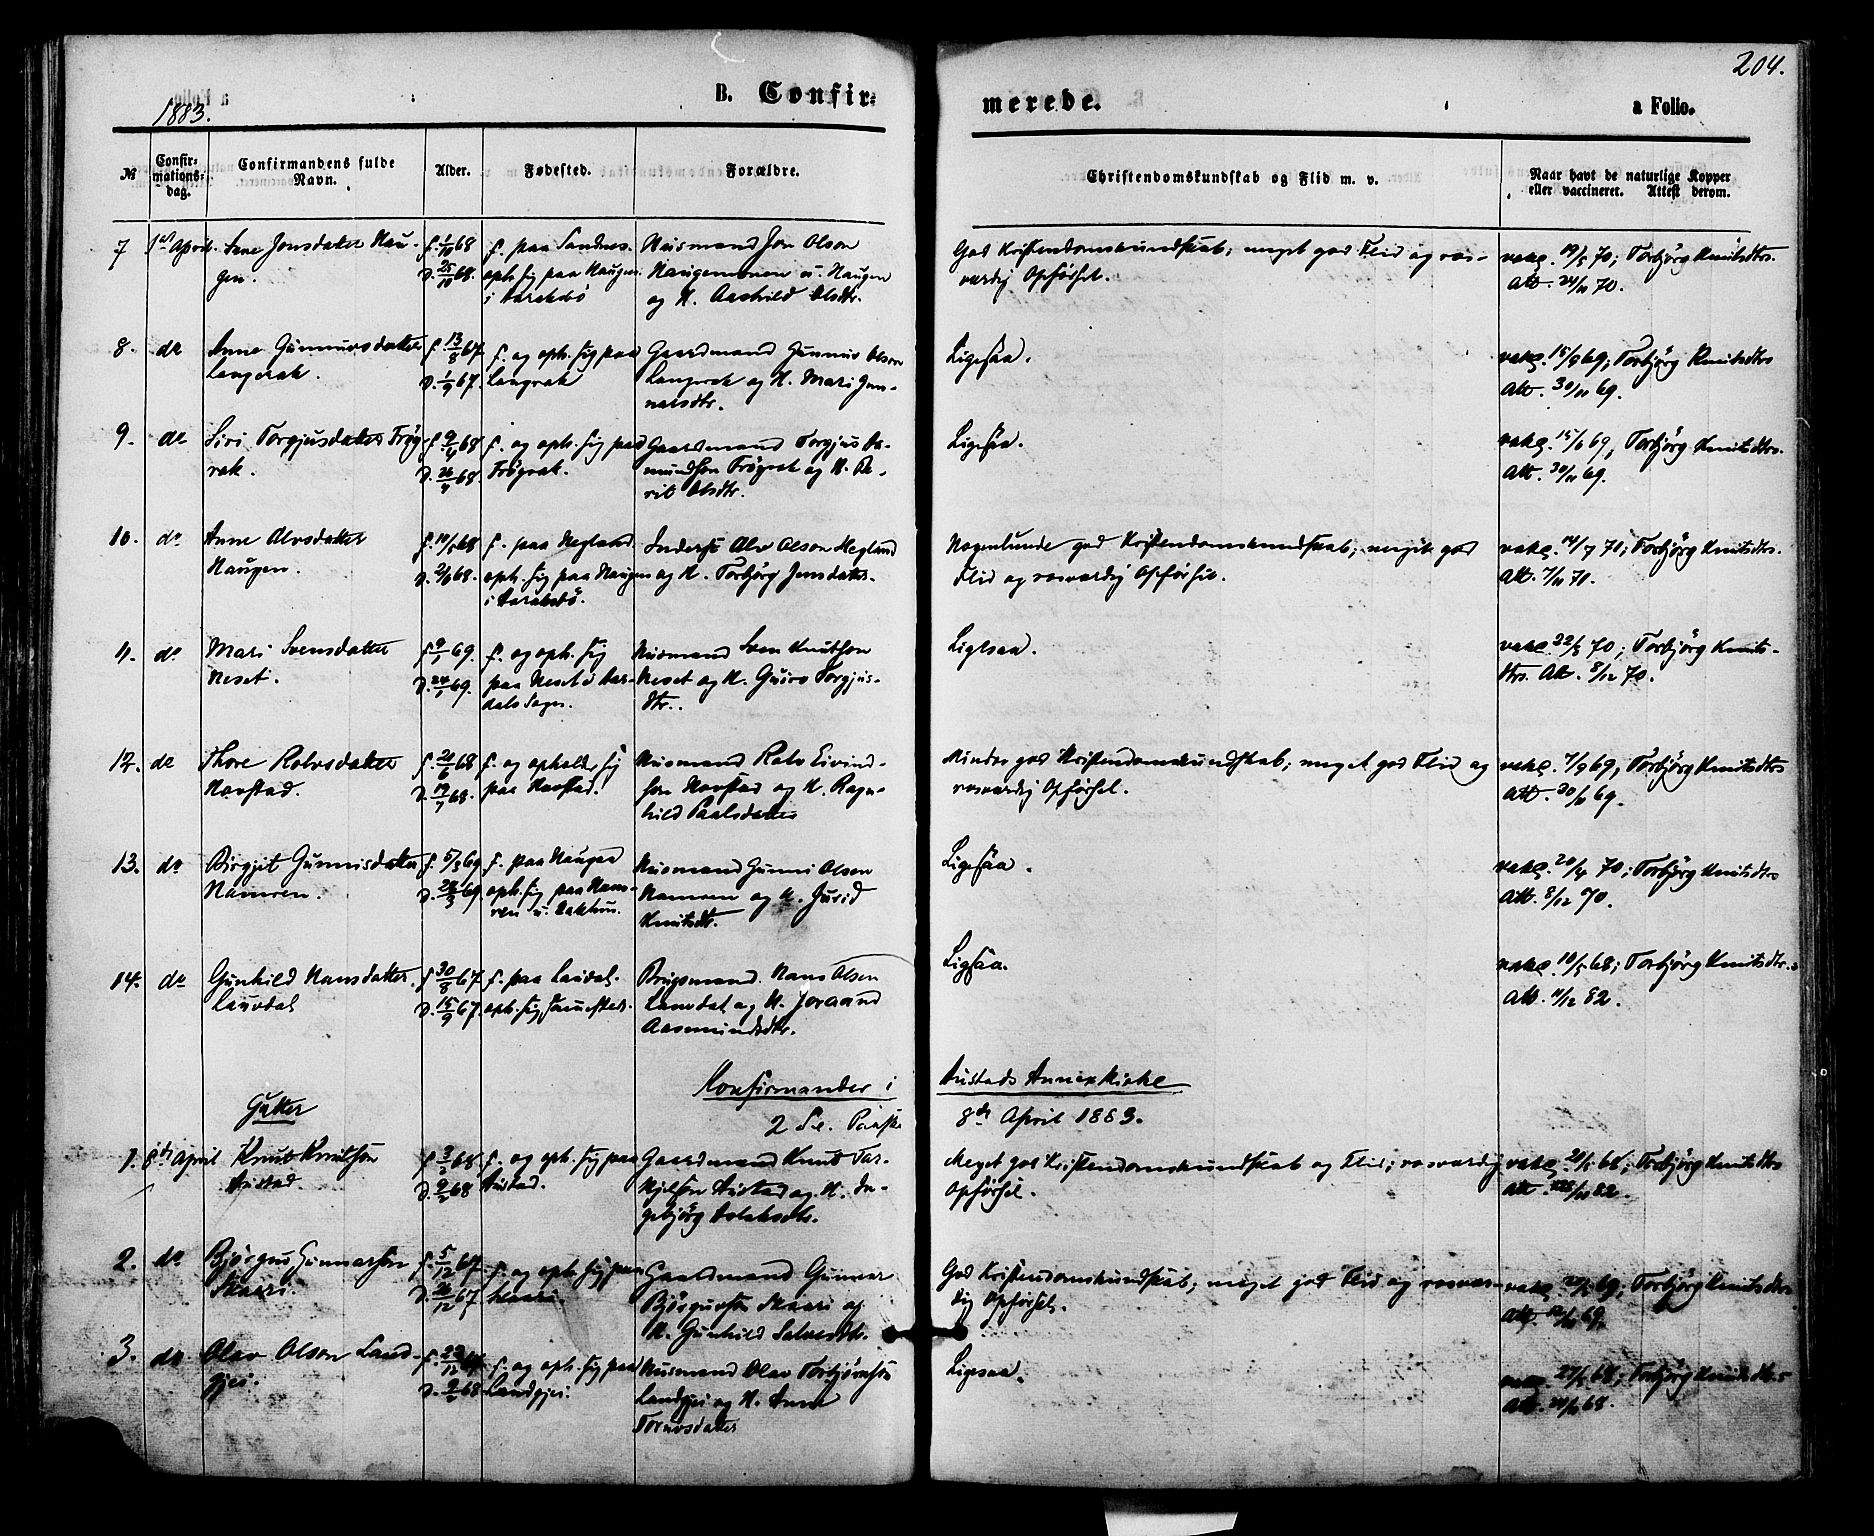 204.
1883.
B. Confir-
merede.
a Folio.
№
Confir-
mations-
dag.
Confirmandens fulde
Navn.
Alder.
Fødested.
Forældre.
Christendomskundskab og Flid m. v.
Naar havt de naturlige Kopper
eller vaccineret. Attest derom.
7 1st April. Jonsdatter Hau-
gen.
f. 1/10 68
D. 25/10 68.
f. paa Sandnes.
oph. sig paa Haugen
i
Husmand Jon Olson
Haugemonen u. Haugen
og K. Aashild Olsdtr.
God Kristendomskundskab; meget god Flid og ros-
værdig Opførsel.
vakc. 19/5 70; Torbjörg Knutsdtr.
Att. 70.
8. do Anne Gunnursdatter
Langerak.
f. 13/8 67
D. 1/9 67.
f. og oph. sig paa
Langrak
Gaardmand Gunnur Olson
Langrak og K. Mari Gun-
narsdtr.
Ligesaa.
vakc. 15/9 69; Torbjörg Knutsdtr
Att. 30/11 69.
9. do Siri Torgjusdatter Frög-
rak.
f. 9/4 68
D. 26/4 68.
f. og oph. sig paa
Frögrak.
Gaardmand Torgjus Aa-
mundson Frögrak og K. Ba-
rit Olsdtr.
Ligesaa.
vakc. 15/6 69; Torbjörg Knutsdtr.
Att. 30/11 69.
10. do Anne Alvsdatter
Haugen.
f. 68
D. 68.
f. paa Hegland
oph. sig paa Haugen
i
Alv Olson Hegland
og K. Torbjörg Jonsdatter.
Nogenlunde god Kristendomskundskab; meget god
Flid og rosværdig Opførsel.
vakc. 14/7 70; Torbjörg Knutsdtr.
Att. 7/11 70.
11. do Mari Svensdatter
Neset.
f. 9/1 69.
D. 24/1 69.
f. og oph. sig
paa Neset i Aar-
dals Sogn.
Husmand Sven Knutson
Neset og K. Guro Torgjus-
dtr.
Ligesaa.
vakc. 22/5 70; Torbjörg Knuts-
dtr. Att. 8/12 70.
12. do Thore Rolvsdatter
Navstad.
f. 21/6 68
D. 19/7 68.
f. og opholder sig
paa Navstad.
Husmand Rolv Eivind-
son Navstad og K. Ragn-
hild Paalsdatter
Mindre god Kristendomskundskab; meget god Flid og
rosværdig Opførsel.
vakc. 7/9 69; Torbjörg Knutsdtr
Att. 30/11 69.
13. do Birgjit Gunnisdatter
Namren.
f. 5/3 69
D. 28/3 69.
f. paa Haugaa
oph. sig paa Nam-
ren u.
Husmand Gunni Olson
Namren og K. Jurid
Knutsdtr.
Ligesaa.
vakc. 70; Torbjörg Knutsdtr
Att. 8/12 70.
14. do Gunhild Hansdatter
Lauvdal
f. 30/8 67.
D. 15/9 67.
f. paa Lauvdal.
oph. sig
Brugsmand Hans Olsen
Lauvdal og K. Joraand
Aasmundsdtr.
Ligesaa.
vakc. 10/5 68; Torbjörg Knutsdtr.
Att. 11/12 82.
Konfirmander i
Austads Annexkirke
Gutter
2 Paaske
8de April 1883.
1. 8de April Knut Knutson
Austad.
f. 3/2 68.
D. 9/2 68
f. og oph. sig paa
Austad.
Gaardmand Knut Tar-
kjelson Austad og K. In-
gebjörg Aslaksdtr.
Meget god Kristendomskundskab og Flid; rosværdig
Opførsel.
vakc. 68; Torbjörg Knutsdtr
Att. 82.
2. do Bjørgus Gunnarson
Skaari.
f. 5/12 67
D. 26/12 67
f. og oph. sig paa
Skaari.
Gaardmand Gunnar
Bjørgusson Skaari og
K. Gunhild Salvesdtr.
God Kristendomskundskab; meget god Flid og rosvær-
dig Opførsel.
vakc. 69; Torbjörg Knutsdtr.
Att. 69.
3. do Olav Olson Land-
gjei.
D. 9/2 68
f. og oph. sig paa
Landgjei.
Husmand Olav Torbjørnson
Landgjei og K. Anne
Torunsdatter
Ligesaa.
vakc. 68; Torbjörg Knutsdtr.
Att. 68.